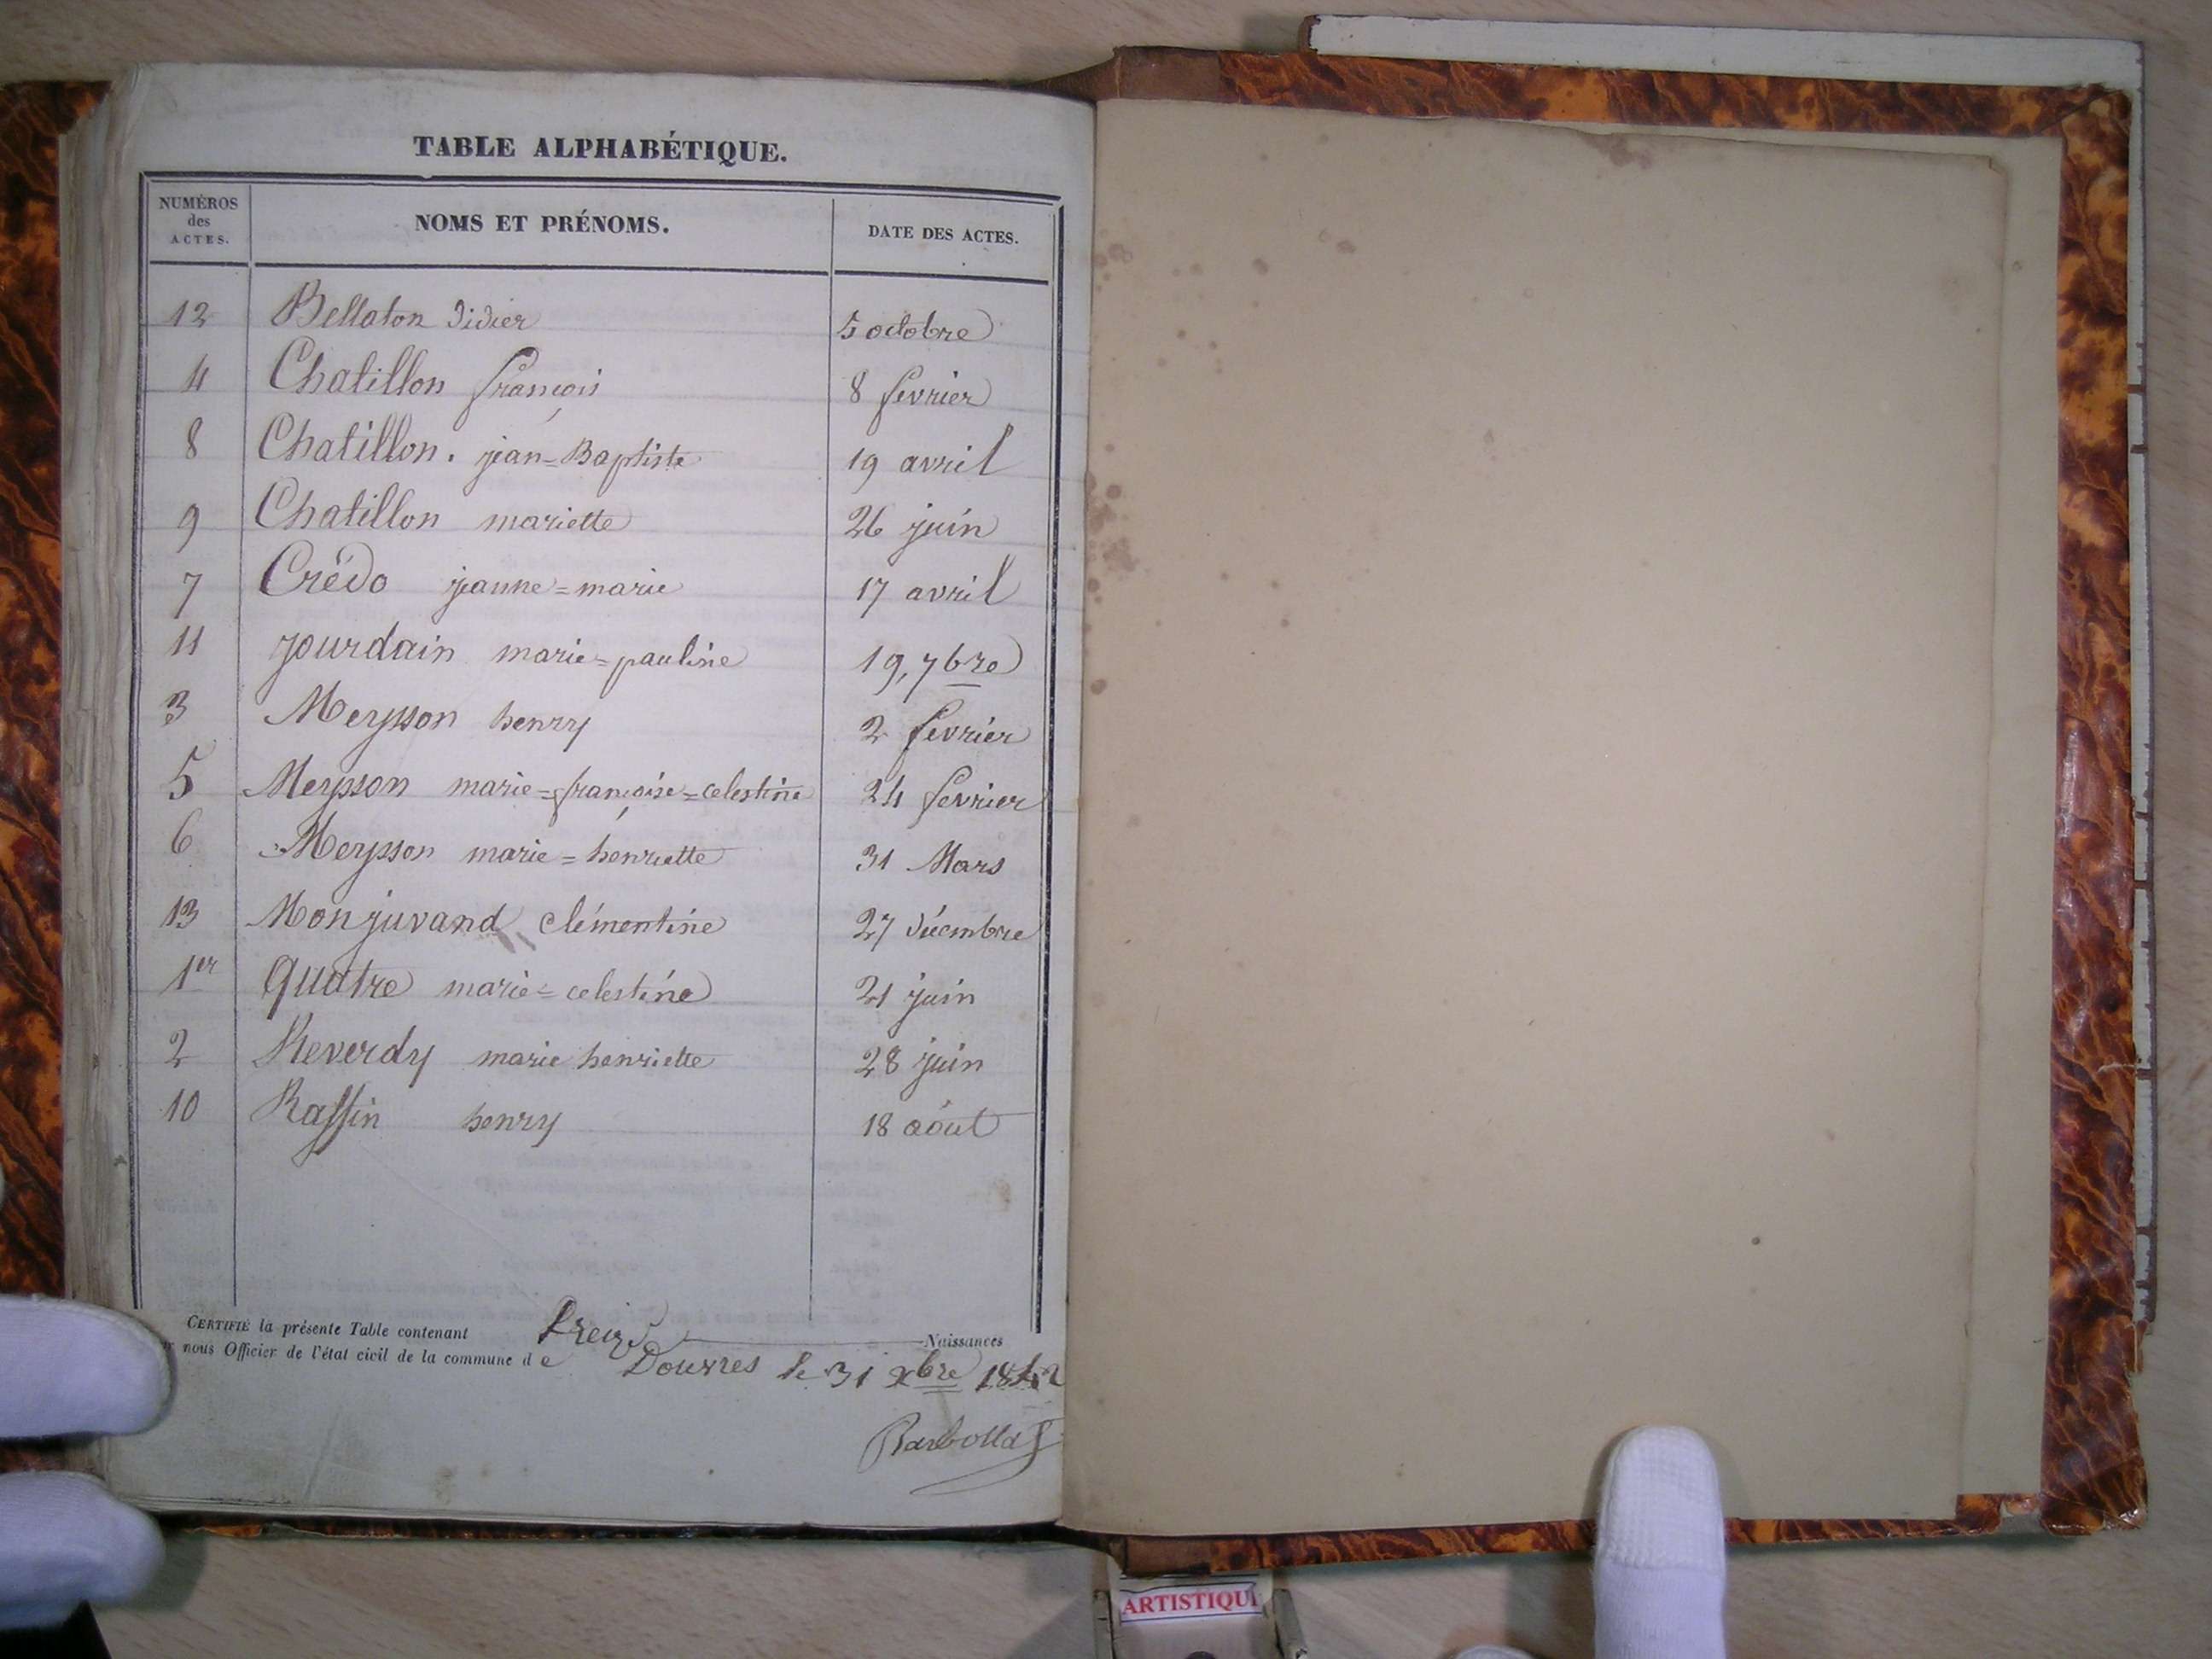 TABLE ALPHABÉTIQUE.
NUMÉROS des ACTES. NOMS ET PRÉNOMS. DATE DES ACTES.
12 Bellaton Didier 5 octobre
4 Chatillon françois 8 fevrier
8 Chatillon. jean=Baptiste 19 avril
9 Chatillon mariette 26 juin
7 Crédo jeanne=marie 17 avril
11 jourdain marie=pauline 19, 7bre
3 Meysson henry 2 fevrier
5 Meysson marie=françoise=celestine 24 fevrier
6 Meysson marie=henriette 31 Mars
13 Monjuvand clémentine 27 décembre
1er quatre marie=celestine 21 juin
2 Reverdy marie henriette 28 juin
10 Raffin henry 18 août
CERTIFIÉ la présente Table contenant treize Naissances
nous Officier de l'état civil de la commune de Douvres le 31 xbre 1842
ARTISTIQU